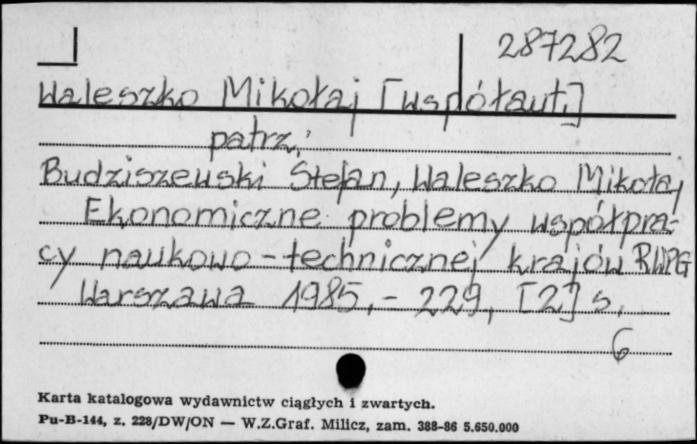 287282
Waleszko Mikołaj [współaut.]
patrz:
Budziszewski Stefan, Waleszko Mikołaj
Ekonomiczne problemy współpra-
cy naukowo-technicznej krajów RWPG
Warszawa 1985,- 229, [2] s.
6
Karta katalogowa wydawnictw ciągłych i zwartych.
Pu-B-144, z. 228/DW/ON — W.Z.Graf. Milicz, zam. 388-86 5.650.000